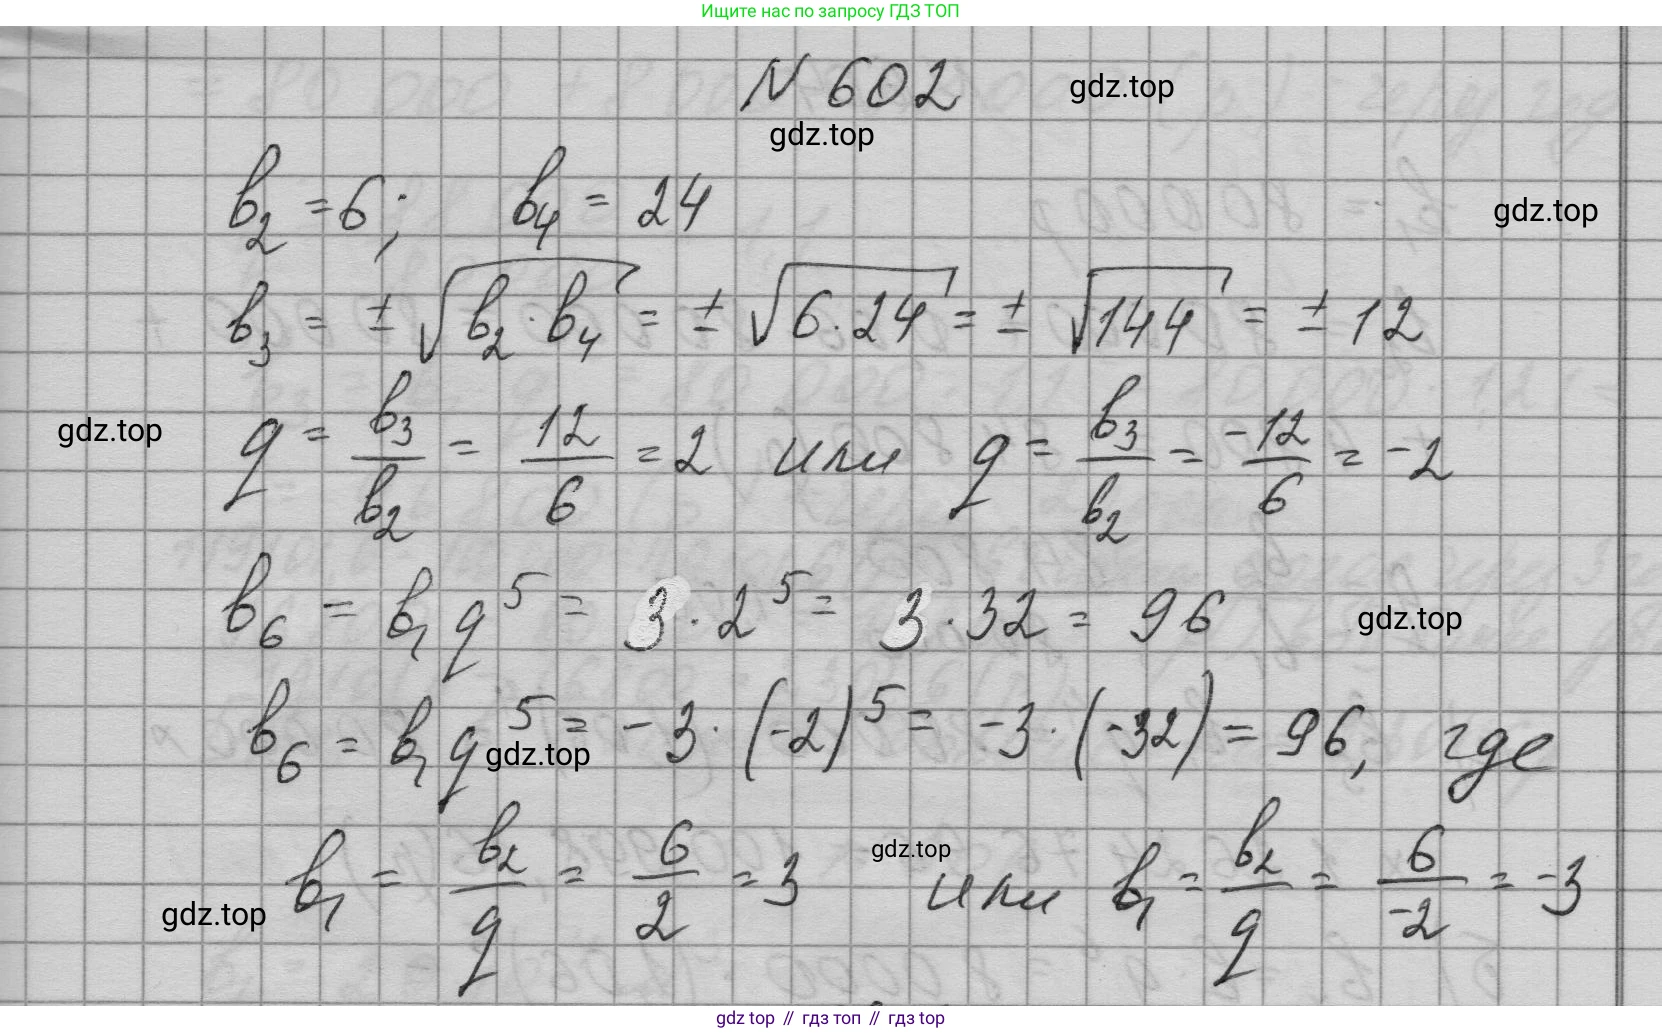 Ищите нас по запросу ГДЗ ТОП
N 602
gdz.top
gdz.top
b₂ = 6; b₄ = 24
gdz.top
b₃ = ± √(b₂ · b₄) = ± √(6 · 24) = ± √144 = ± 12
gdz.top
q = b₃/b₂ = 12/6 = 2 или q = b₃/b₂ = -12/6 = -2
b₆ = b₁q⁵ = 3 · 2⁵ = 3 · 32 = 96
gdz.top
b₆ = b₁q⁵ = -3 · (-2)⁵ = -3 · (-32) = 96, где
gdz.top
gdz.top
b₁ = b₂/q = 6/2 = 3 или b₁ = b₂/q = 6/-2 = -3
gdz.top
gdz top // гдз топ // гдз top